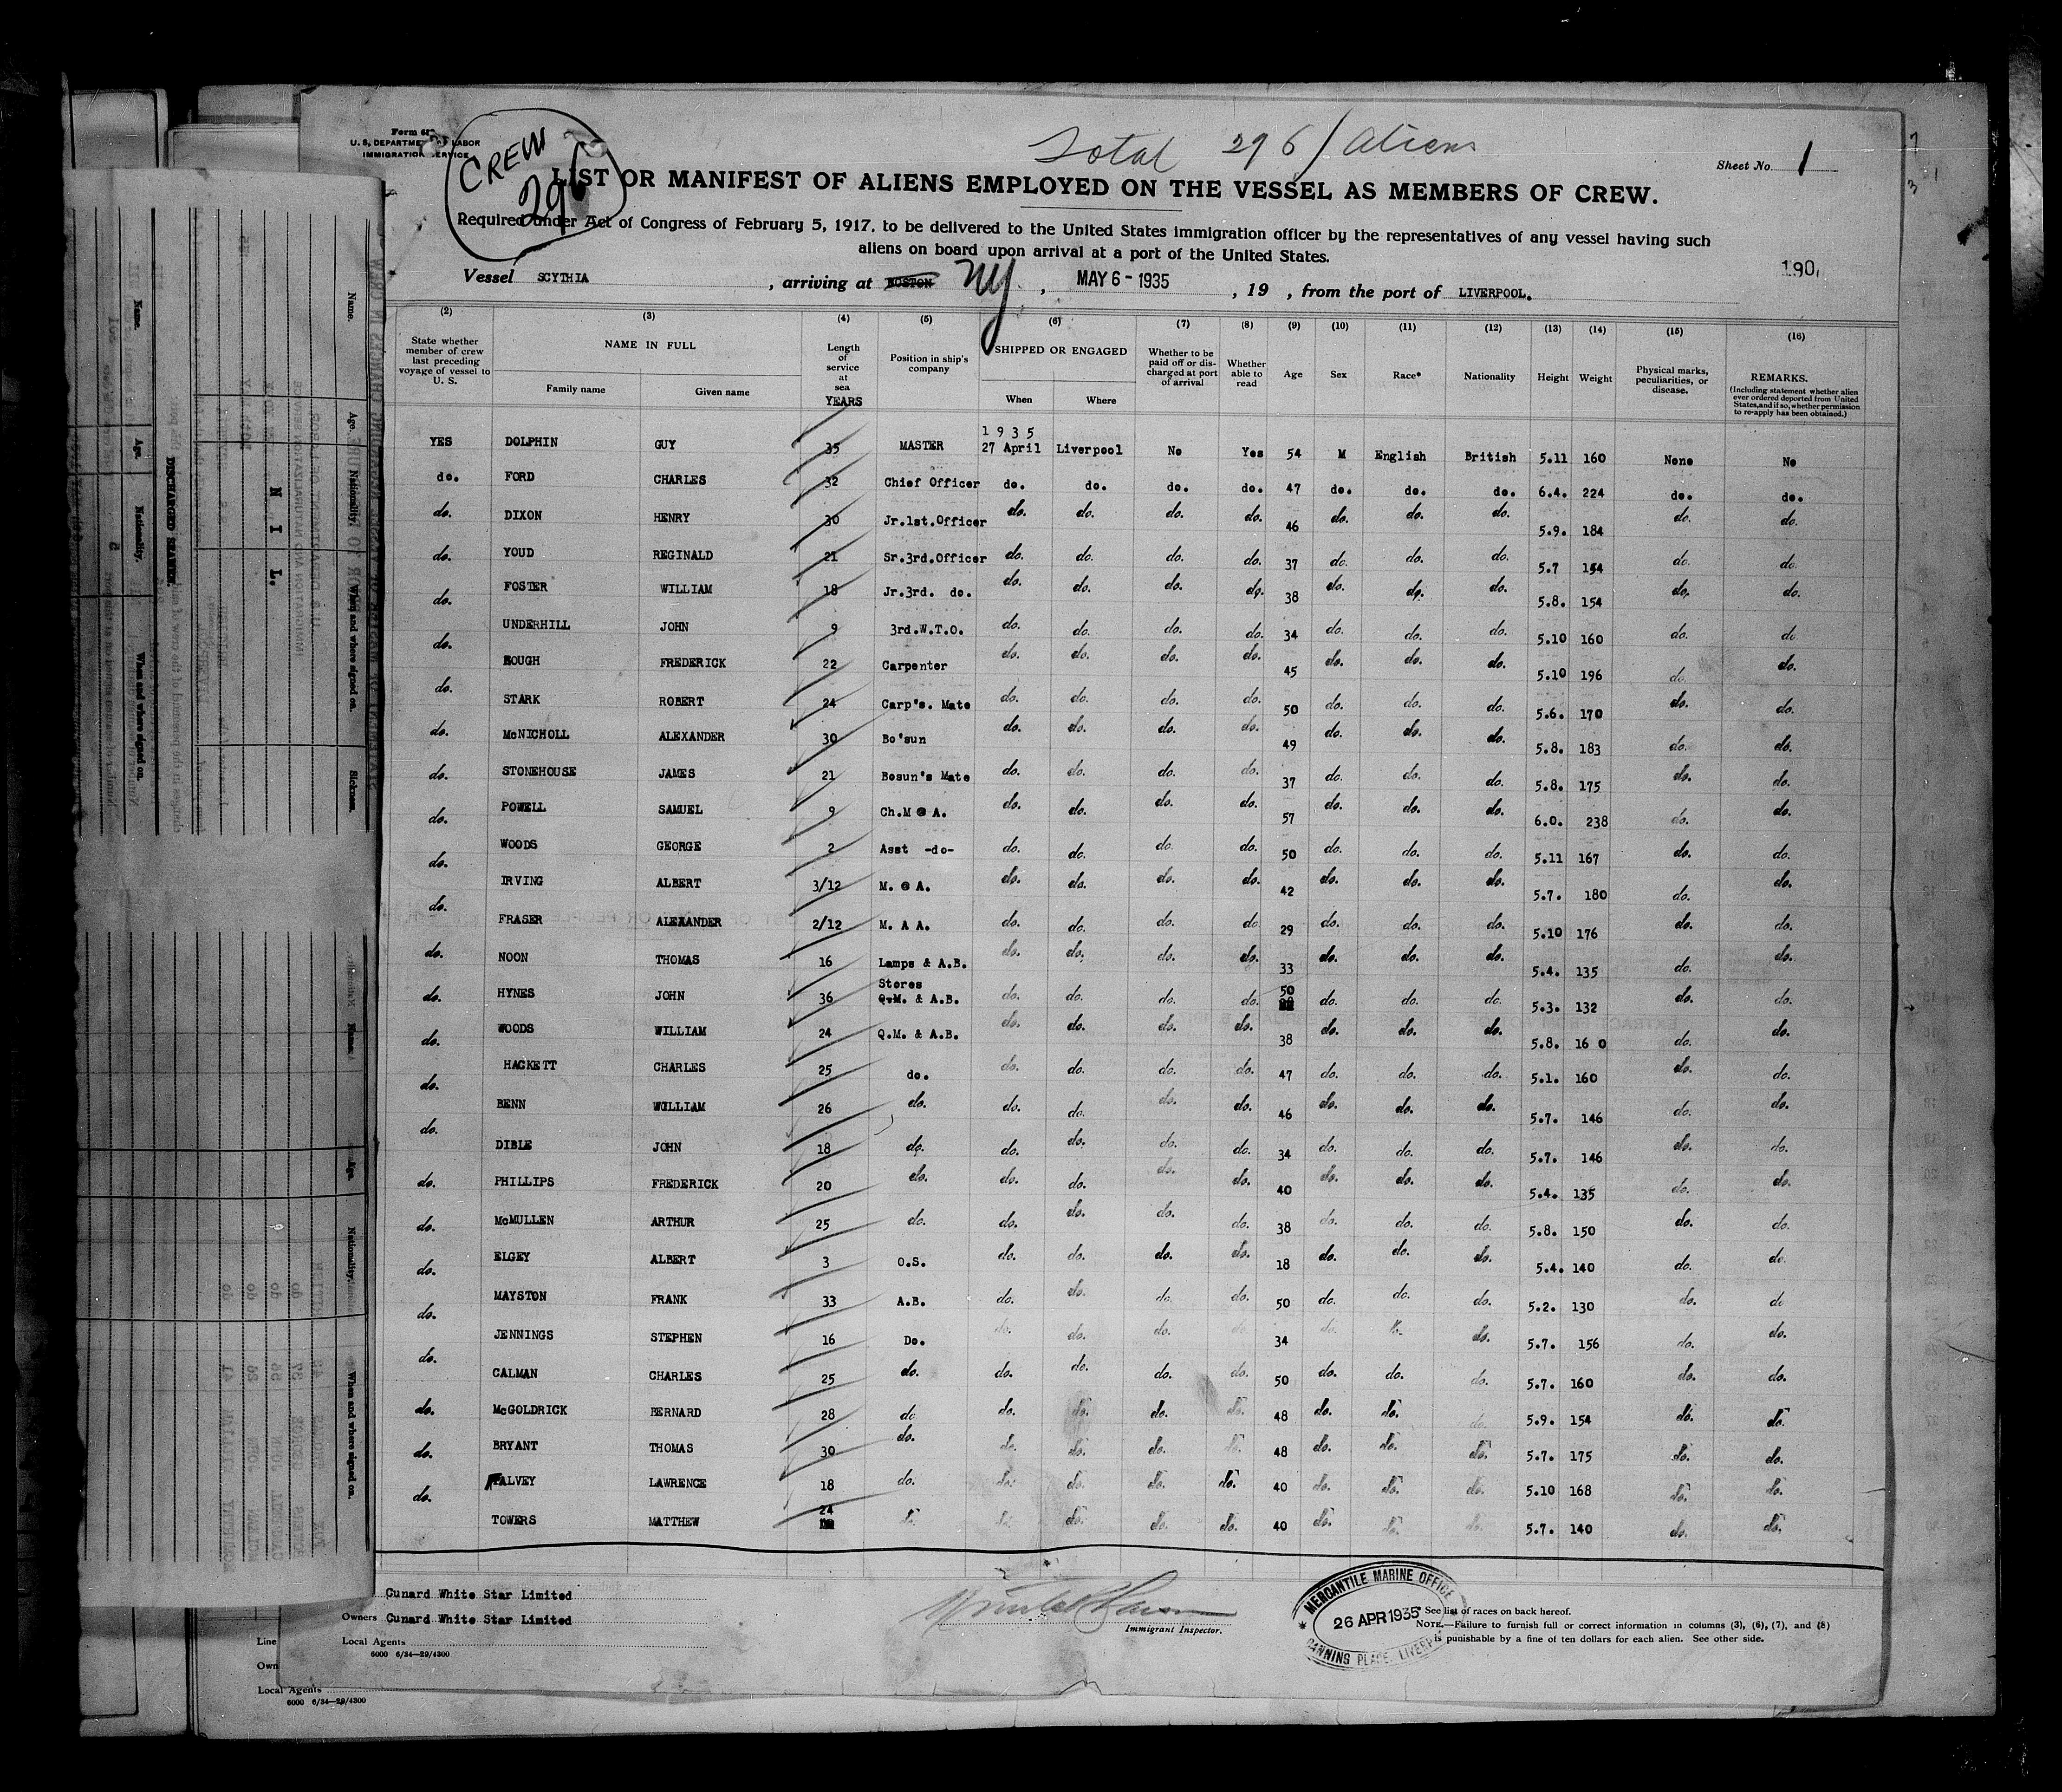 Total 296 / Aliens
CREW
296
Form 68
U. S. DEPARTMENT OF LABOR
IMMIGRATION SERVICE
Sheet No. 1
LIST OR MANIFEST OF ALIENS EMPLOYED ON THE VESSEL AS MEMBERS OF CREW.
Required under Act of Congress of February 5, 1917, to be delivered to the United States immigration officer by the representatives of any vessel having such
aliens on board upon arrival at a port of the United States.
190
Vessel SCYTHIA , arriving at BOSTON NY. , MAY 6 - 1935 , 19 , from the port of LIVERPOOL.
(2) (3) (4) (5) (6) (7) (8) (9) (10) (11) (12) (13) (14) (15) (16)
State whether member of crew last preceding voyage of vessel to U. S.
NAME IN FULL
Family name Given name
Length of service at sea
YEARS
Position in ship's company
SHIPPED OR ENGAGED
When Where
Whether to be paid off or discharged at port of arrival
Whether able to read
Age Sex Race* Nationality Height Weight
Physical marks, peculiarities, or disease.
REMARKS.
(Including statement whether alien ever ordered deported from United States, and if so, whether permission to re-apply has been obtained.)
1935
YES DOLPHIN GUY 35 MASTER 27 April Liverpool No Yes 54 M English British 5.11 160 None No
do. FORD CHARLES 32 Chief Officer do. do. do. do. 47 do. do. do. 6.4. 224 do. do.
do. DIXON HENRY 30 Jr.1st.Officer do. do. do. do. 46 do. do. do. 5.9. 184 do. do.
do. YOUD REGINALD 21 Sr.3rd.Officer do. do. do. do. 37 do. do. do. 5.7 154 do. do.
do. FOSTER WILLIAM 18 Jr.3rd. do. do. do. do. do. 38 do. do. do. 5.8. 154 do. do.
do. UNDERHILL JOHN 9 3rd.W.T.O. do. do. do. do. 34 do. do. do. 5.10 160 do. do
do. ROUGH FREDERICK 22 Carpenter do. do. do. do. 45 do. do. do. 5.10 196 do. do.
do. STARK ROBERT 24 Carp's. Mate do. do. do. do. 50 do. do. do. 5.6. 170 do. do.
do. McNICHOLL ALEXANDER 30 Bo'sun do. do. do. do. 49 do. do. do. 5.8. 183 do. do.
do. STONEHOUSE JAMES 21 Bosun's Mate do. do. do. do. 37 do. do. do. 5.8. 175 do. do.
do. POWELL SAMUEL 9 Ch.M @ A. do. do. do. do. 57 do. do. do. 6.0. 238 do. do.
do. WOODS GEORGE 2 Asst -do- do. do. do. do. 50 do. do. do. 5.11 167 do. do.
do. IRVING ALBERT 3/12 M. @ A. do. do. do. do. 42 do. do. do. 5.7. 180 do. do.
do. FRASER ALEXANDER 2/12 M. A A. do. do. do. do 29 do. do. do. 5.10 176 do. do.
do. NOON THOMAS 16 Lamps & A.B. do. do. do. do. 33 do. do. do. 5.4. 135 do. do.
Stores 50
do. HYNES JOHN 36 Q.M. & A.B. do. do. do. do. do. do. do. 5.3. 132 do. do.
do. WOODS WILLIAM 24 Q.M. & A.B. do. do. do. do. 38 do. do. do. 5.8. 16 0 do. do.
do. HACKETT CHARLES 25 do. do. do. do. do. 47 do. do. do. 5.1. 160 do. do.
do. BENN WILLIAM 26 do. do. do. do. do. 46 do. do. do. 5.7. 146 do. do.
DIBLE JOHN 18 do. do. do. do. do. 34 do. do. do. 5.7. 146 do. do.
do. PHILLIPS FREDERICK 20 do. do. do. do. do. 40 do. do. do. 5.4. 135 do. do.
do. McMULLEN ARTHUR 25 do. do. do. do. do. 38 do. do. do. 5.8. 150 do. do.
do. ELGEY ALBERT 3 O.S. do. do. do. do. 18 do. do. do. 5.4. 140 do. do.
do. MAYSTON FRANK 33 A.B. do. do. do. do. 50 do. do. do. 5.2. 130 do. do
JENNINGS STEPHEN 16 Do. do. do. do. do 34 do. do. 5.7. 156 do. do.
do. CALMAN CHARLES 25 do. do. do. do. do. 50 do. do. do. 5.7. 160 do. do.
do. McGOLDRICK BERNARD 28 do do. do. do. do. 48 do. do. do. 5.9. 154 do. do.
do. BRYANT THOMAS 30 do. do. do. do. do. 48 do. do. do. 5.7. 175 do. do.
do. FALVEY LAWRENCE 18 do. do. do. do. do. 40 do. do. do. 5.10 168 do. do.
TOWERS MATTHEW 24 do. do. do. do. do. 40 do. do. do. 5.7. 140 do. do.
Cunard White Star Limited
Owners Cunard White Star Limited
Local Agents
6000 6/34—29/4300
Immigrant Inspector.
MERCANTILE MARINE OFFICE
26 APR 1935
CANNING PLACE, LIVERP
* See list of races on back hereof.
NOTE.—Failure to furnish full or correct information in columns (3), (6), (7), and (8)
is punishable by a fine of ten dollars for each alien. See other side.
Line
Own
Local Agents
6000 6/34—29/4300
Name. Age. Nationality. When and where signed on. Sickness.
N I L.
DISCHARGED SEAMEN.
Name. Age. Nationality. When and where signed on.